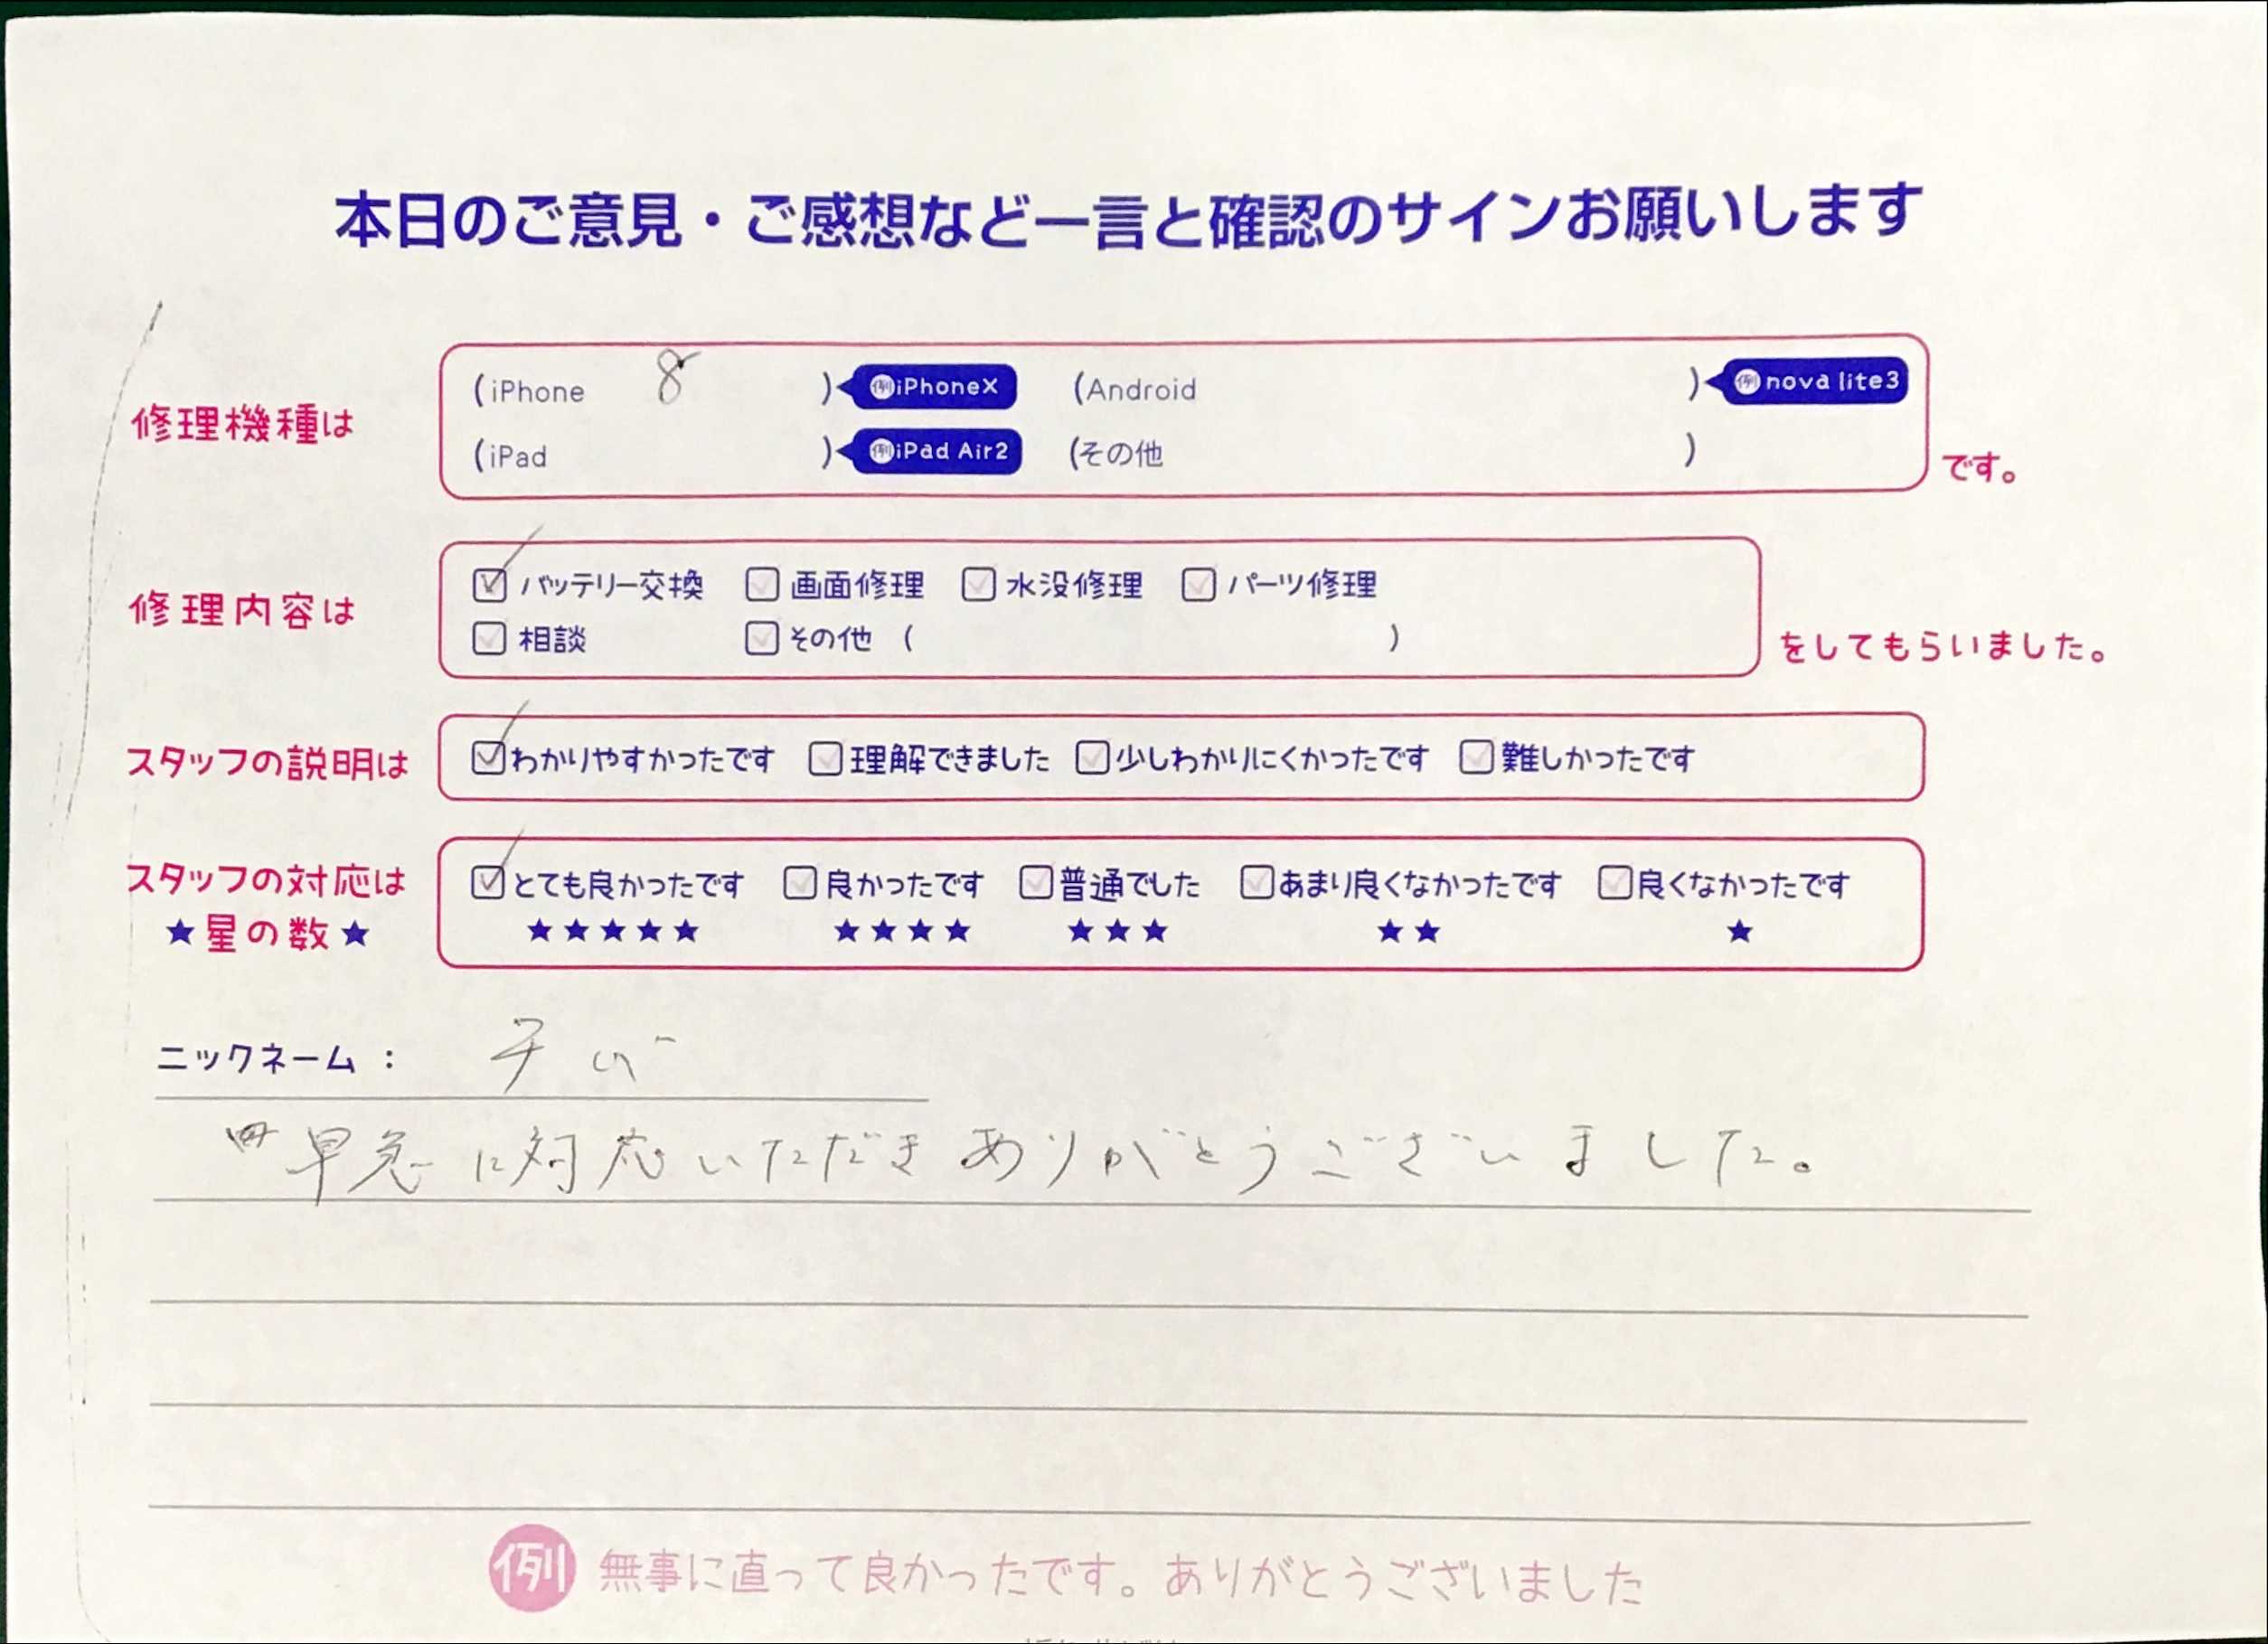 本日のご意見・ご感想など一言と確認のサインお願いします
修理機種は
(iPhone 8 ) 例iPhoneX (Android ) 例nova lite3
(iPad ) 例iPad Air2 (その他 ) です。
修理内容は
バッテリー交換 画面修理 水没修理 パーツ修理
相談 その他 ( ) をしてもらいました。
スタッフの説明は わかりやすかったです 理解できました 少しわかりにくかったです 難しかったです
スタッフの対応は とても良かったです 良かったです 普通でした あまり良くなかったです 良くなかったです
★星の数★ ★★★★★ ★★★★ ★★★ ★★ ★
ニックネーム：
早急に対応いただきありがとうございました。
例 無事に直って良かったです。ありがとうございました